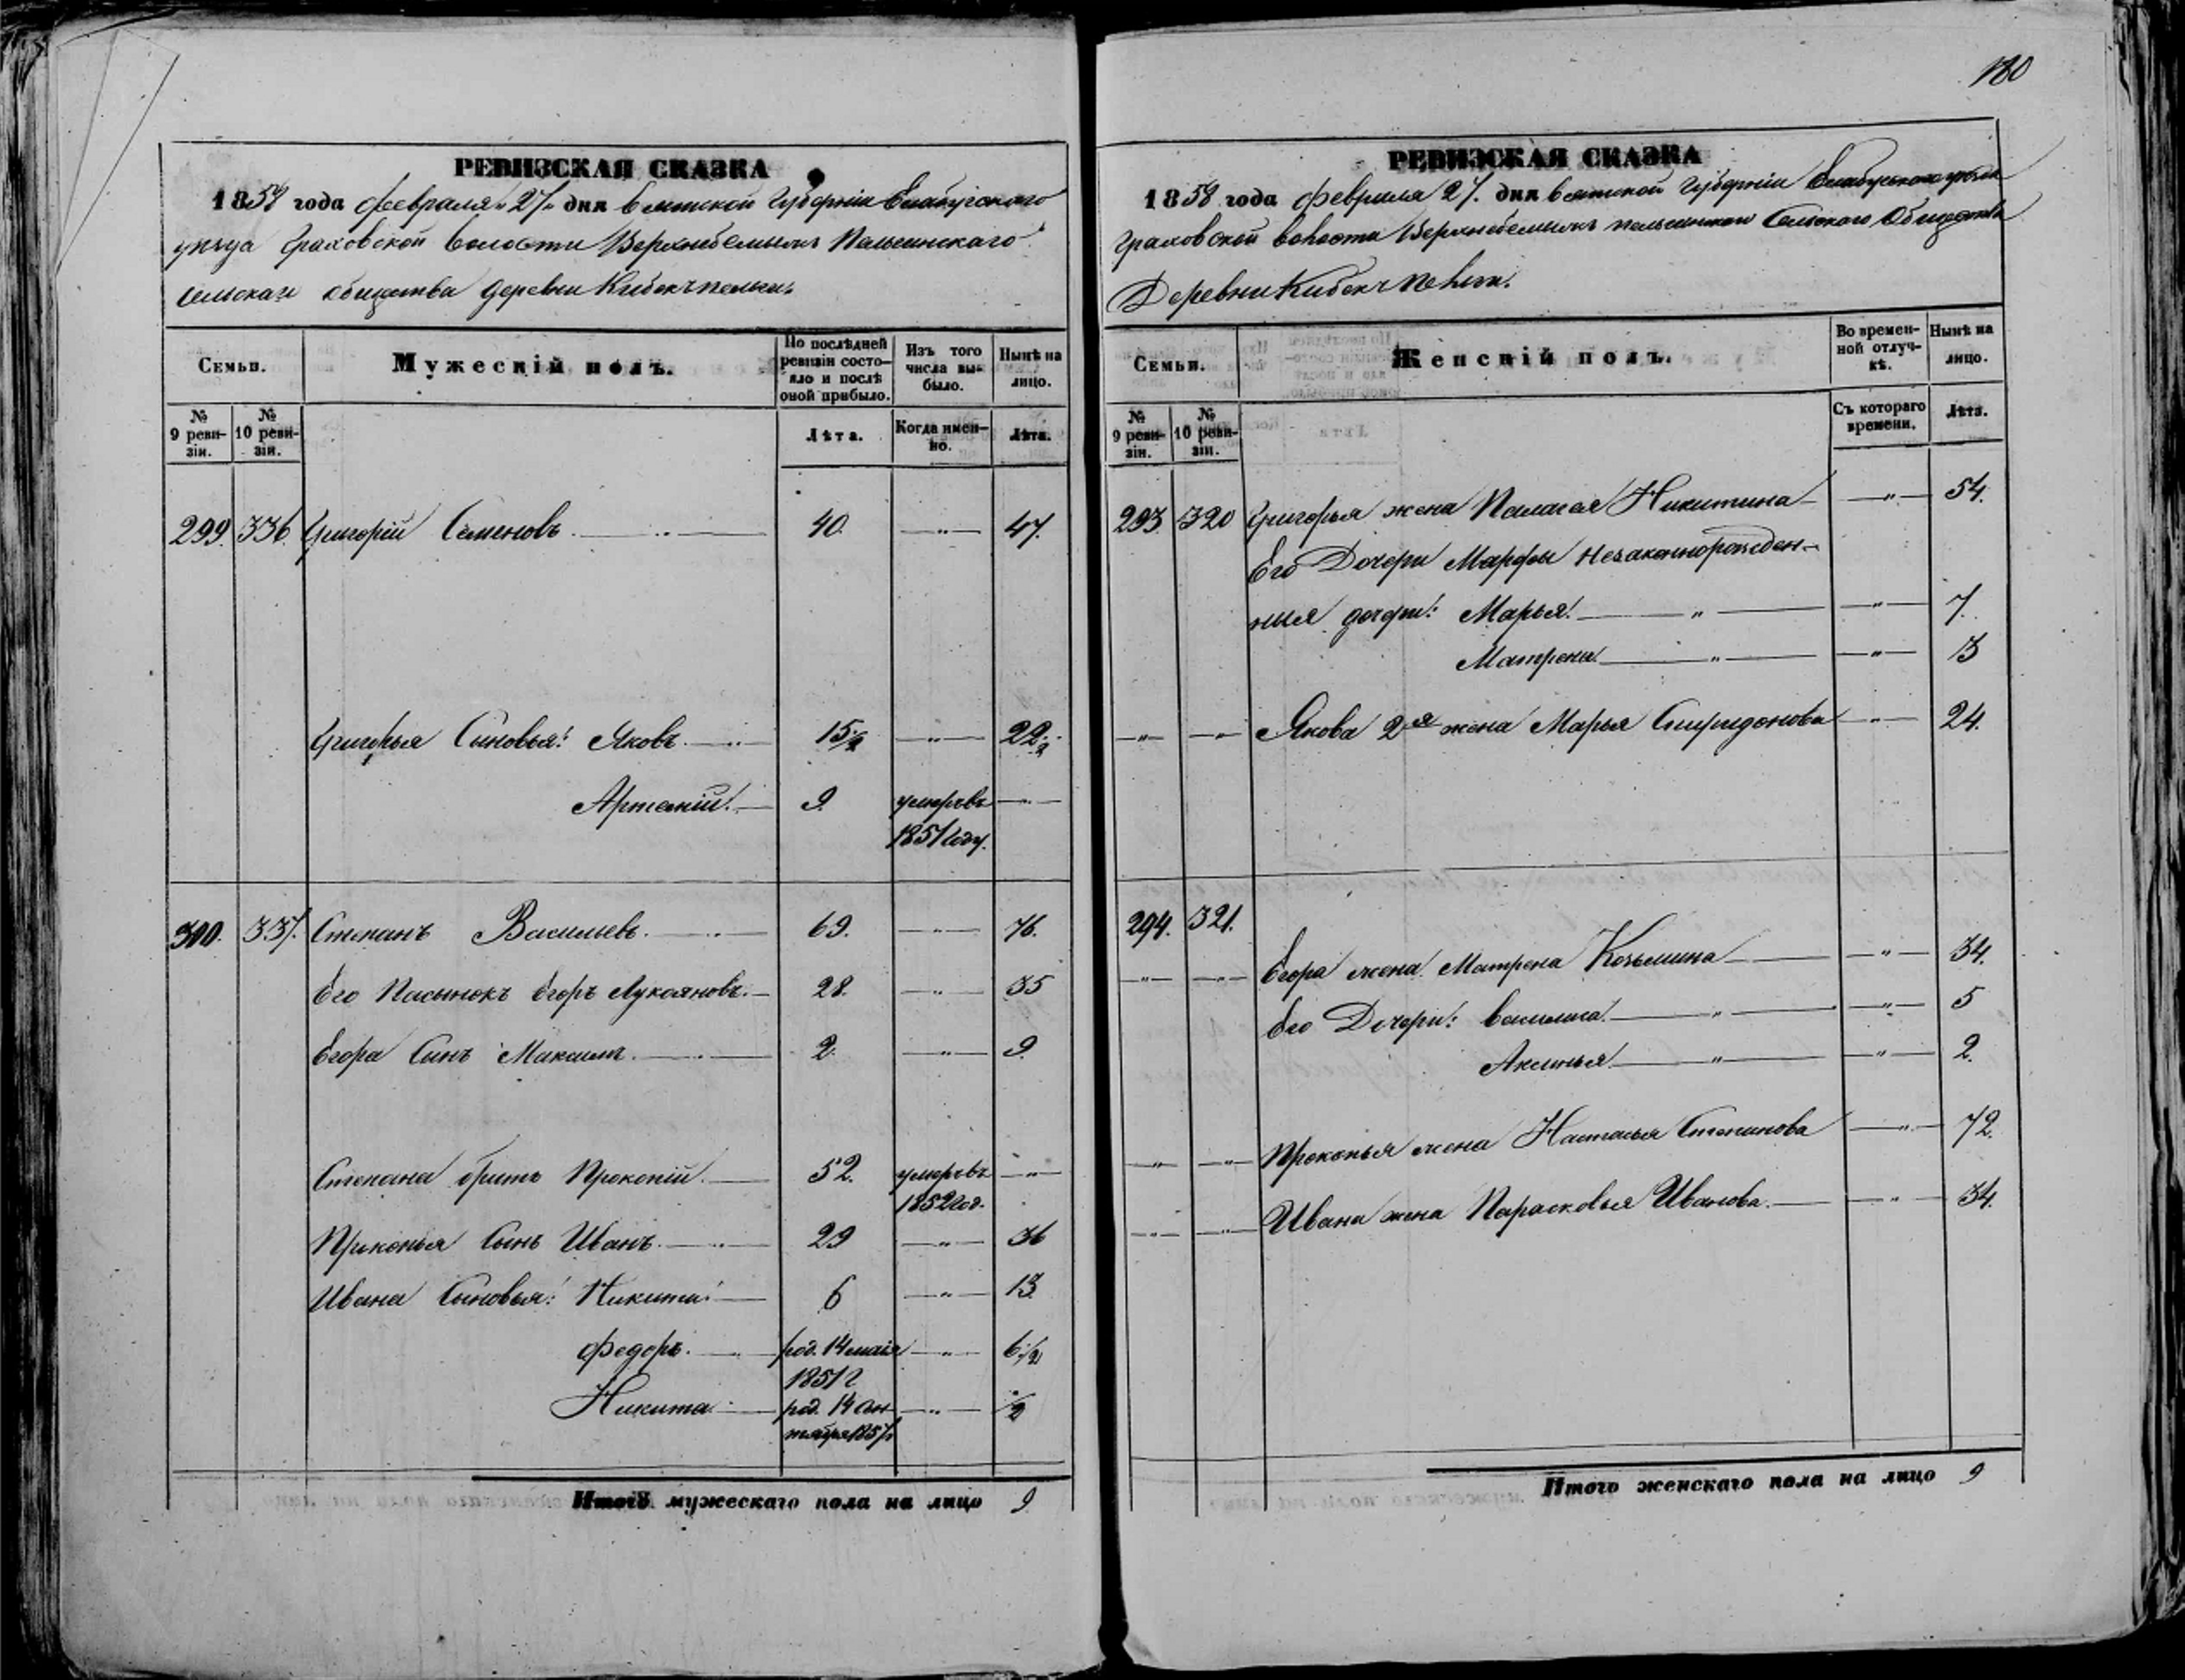 180
РЕВИЗСКАЯ СКАЗКА
1858 года февраля 27 дня Вятской Губерніи Елабугскаго
уѣзда Граховской волости
Сельскаго общества деревни
Семьи.
Мужескій полъ.
По послѣдней ревизіи состояло и послѣ оной прибыло.
Изъ того числа выбыло.
Нынѣ на лицо.
№ 9 ревизіи.
№ 10 ревизіи.
Лѣта.
Когда именно.
Лѣта.
299. 336. Григорій Семеновъ 40. 47.
Григорья Сыновья: Яковъ 15 1/2 22 1/2
Артемій 9. умеръ въ
1851 году.
300. 337. Степанъ Васильевъ. 69. 76.
Его Пасынокъ Егоръ Лукояновъ. 28. 35
Егора Сынъ Максимъ. 2. 9.
Степана братъ Прокопій. 52. умеръ въ
1852 год.
Прокопья Сынъ Иванъ. 29 36
Ивана Сыновья: Никита 6 13
Федоръ. род. 14 маія 6 1/2
1851 г
Никита род. 14 1/2
1857
Итого мужескаго пола на лицо 9
РЕВИЗСКАЯ СКАЗКА
1858 года февраля 27. дня Вятской Губерніи Елабугскаго уѣзда
Граховской волости Сельскаго Общества
Деревни
Семьи.
Женскій полъ.
Во временной отлучкѣ.
Нынѣ на лицо.
№ 9 ревизіи.
№ 10 ревизіи.
Съ котораго времени.
Лѣта.
293 320 Григорья жена Палагея Никитина 54.
Его Дочери Марфы незаконнорожден-
ныя дочери: Марья. 7.
Матрена 3
Якова 2я жена Марья Спиридонова 24.
294. 321.
Егора жена Матрена Козьмина 34.
Его Дочери: Василиса. 5
Аксинья 2.
Прокопья жена Настасья Степанова 72.
Ивана жена Парасковья Иванова. 34.
Итого женскаго пола на лицо 9